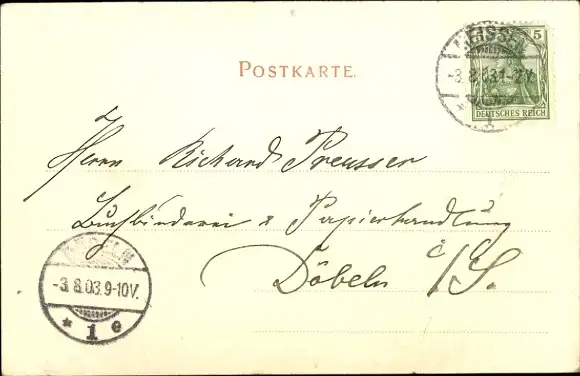 MEISSEN
-3.8.03.1-2V.
1
5
DEUTSCHES REICH
POSTKARTE.
Herrn Richard Preusser
Buchbinderei & Papierhandlung
Döbeln i/S.
DÖBELN
-3.8.03.9-10V.
* 1 e